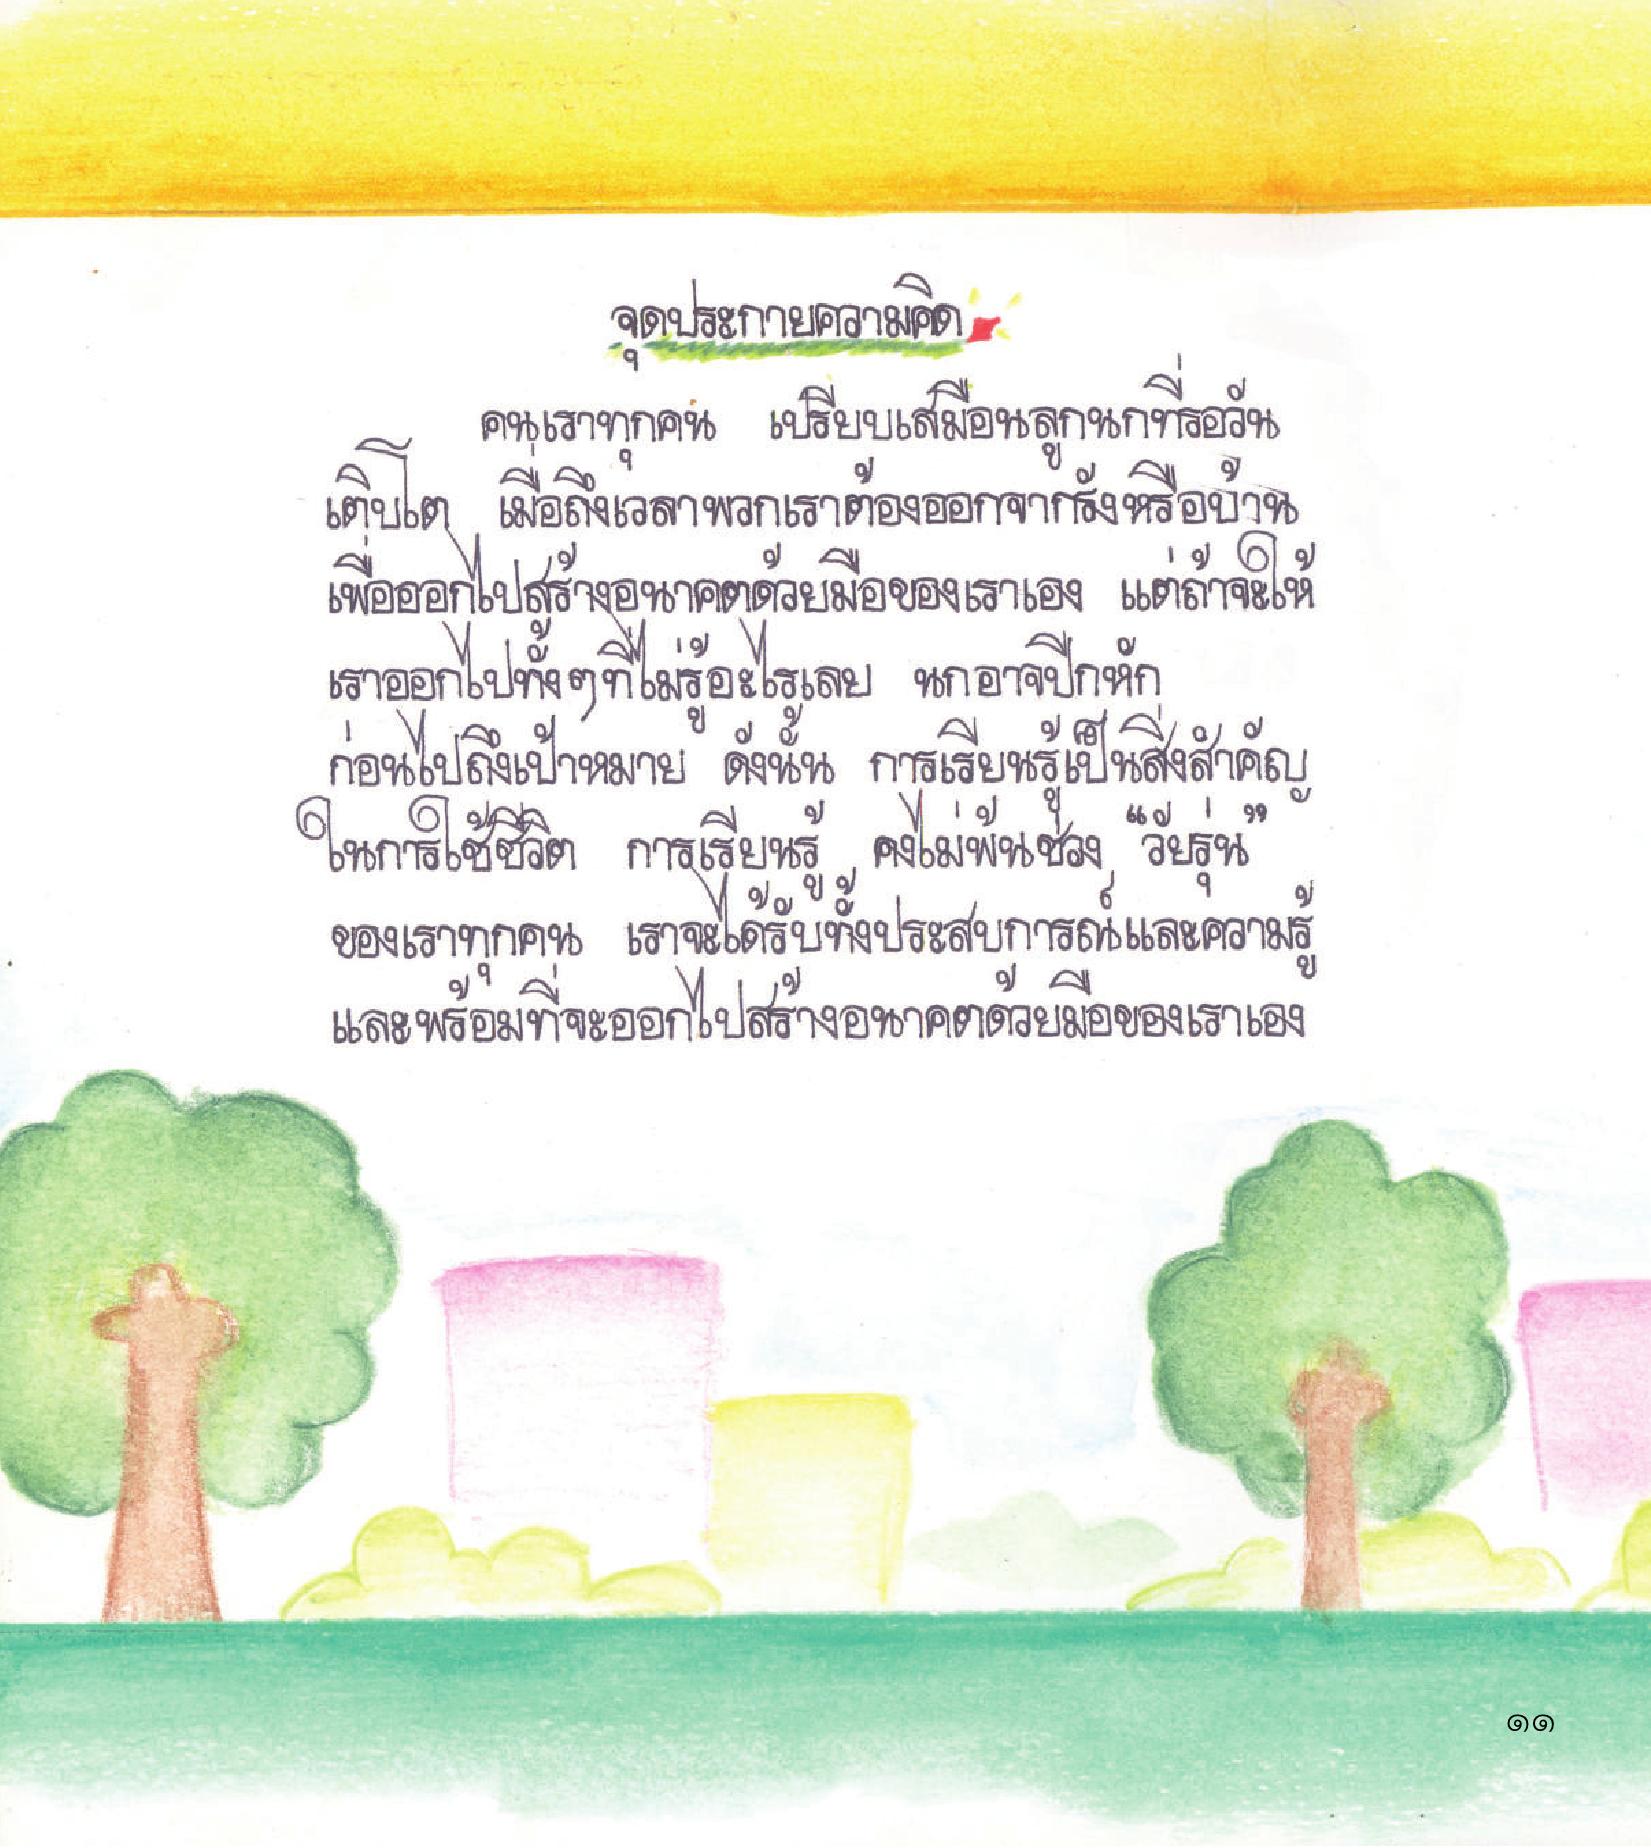 จุดประกายความคิด
คนเราทุกคน เปรียบเสมือนลูกนกที่รอวัน
เติบโต เมื่อถึงเวลาพวกเราต้องออกจากรังหรือบ้าน
เพื่อออกไปสร้างอนาคตด้วยมือของเราเอง แต่ถ้าจะให้
เราออกไปทั้งๆที่ไม่รู้อะไรเลย นกอาจปีกหัก
ก่อนไปถึงเป้าหมาย ดังนั้น การเรียนรู้เป็นสิ่งสำคัญ
ในการใช้ชีวิต การเรียนรู้ คงไม่พ้นช่วง “วัยรุ่น”
ของเราทุกคน เราจะได้รับทั้งประสบการณ์และความรู้
และพร้อมที่จะออกไปสร้างอนาคตด้วยมือของเราเอง
๑๑